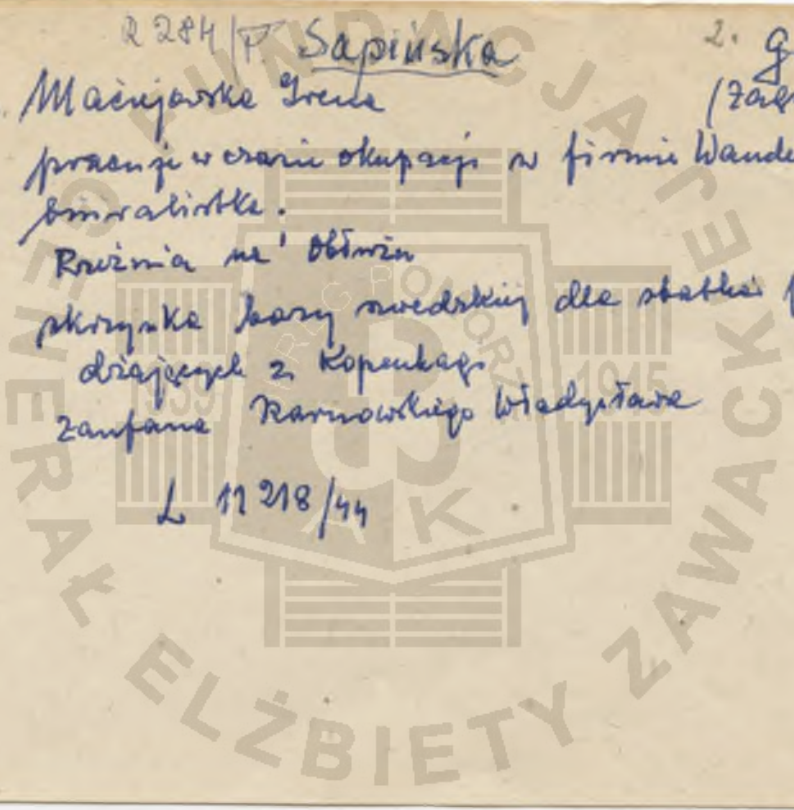 R 284/P. Sapińska 2. G
Maciejowska Irena (Zag
pracuje w czasie okupacji w firmie Wande
biuralistka.
na Obłużu
skrzynka bazy szwedzkiej dla statków
dżających z Kopenhagi
zaufana Karnowskiego Władysława
L 11 218/44
FUNDACJA GENERAŁ ELŻBIETY ZAWACKIEJ
1939 1945
AK